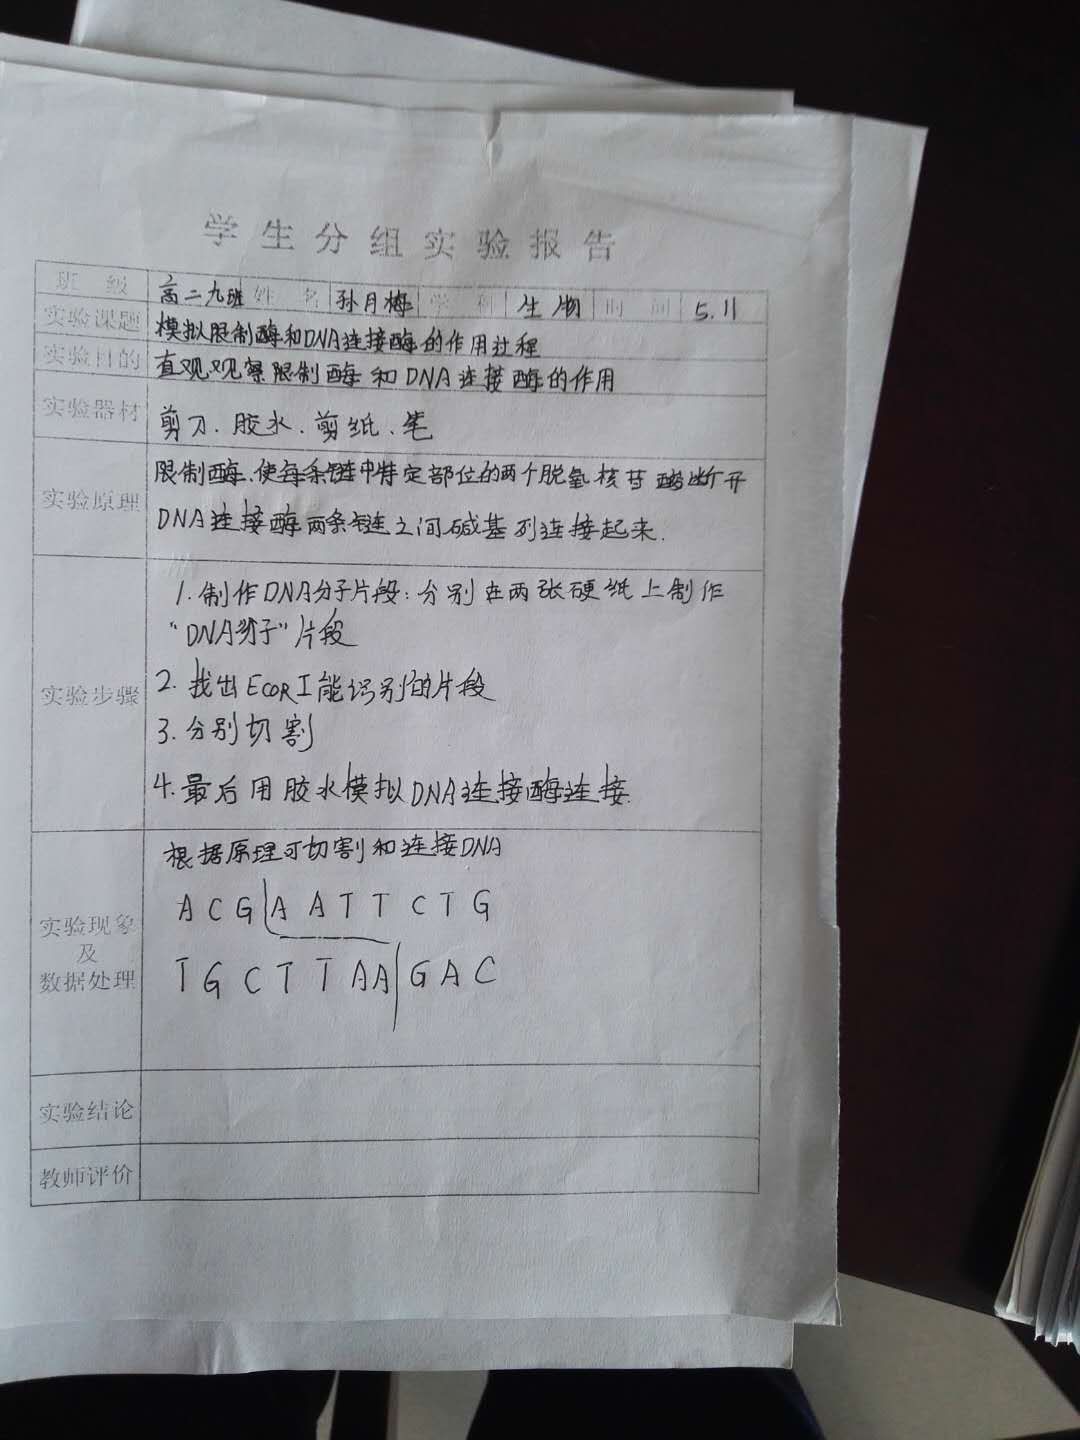 学生分组实验报告
班级 高二九班 姓名 孙月梅 学科 生物 时间 5.11
实验课题 模拟限制酶和DNA连接酶的作用过程
实验目的 直观观察限制酶和DNA连接酶的作用
实验器材 剪刀.胶水.剪纸、笔
实验原理 限制酶.使每条链中特定部位的两个脱氧核苷酸断开
DNA连接酶两条链之间碱基列连接起来.
实验步骤
1.制作DNA分子片段:分别在两张硬纸上制作
“DNA分子”片段
2.找出EcoRI能识别的片段
3.分别切割
4.最后用胶水模拟DNA连接酶连接.
实验现象
及
数据处理
根据原理可切割和连接DNA
A C G A A T T C T G
T G C T T A A G A C
实验结论
教师评价